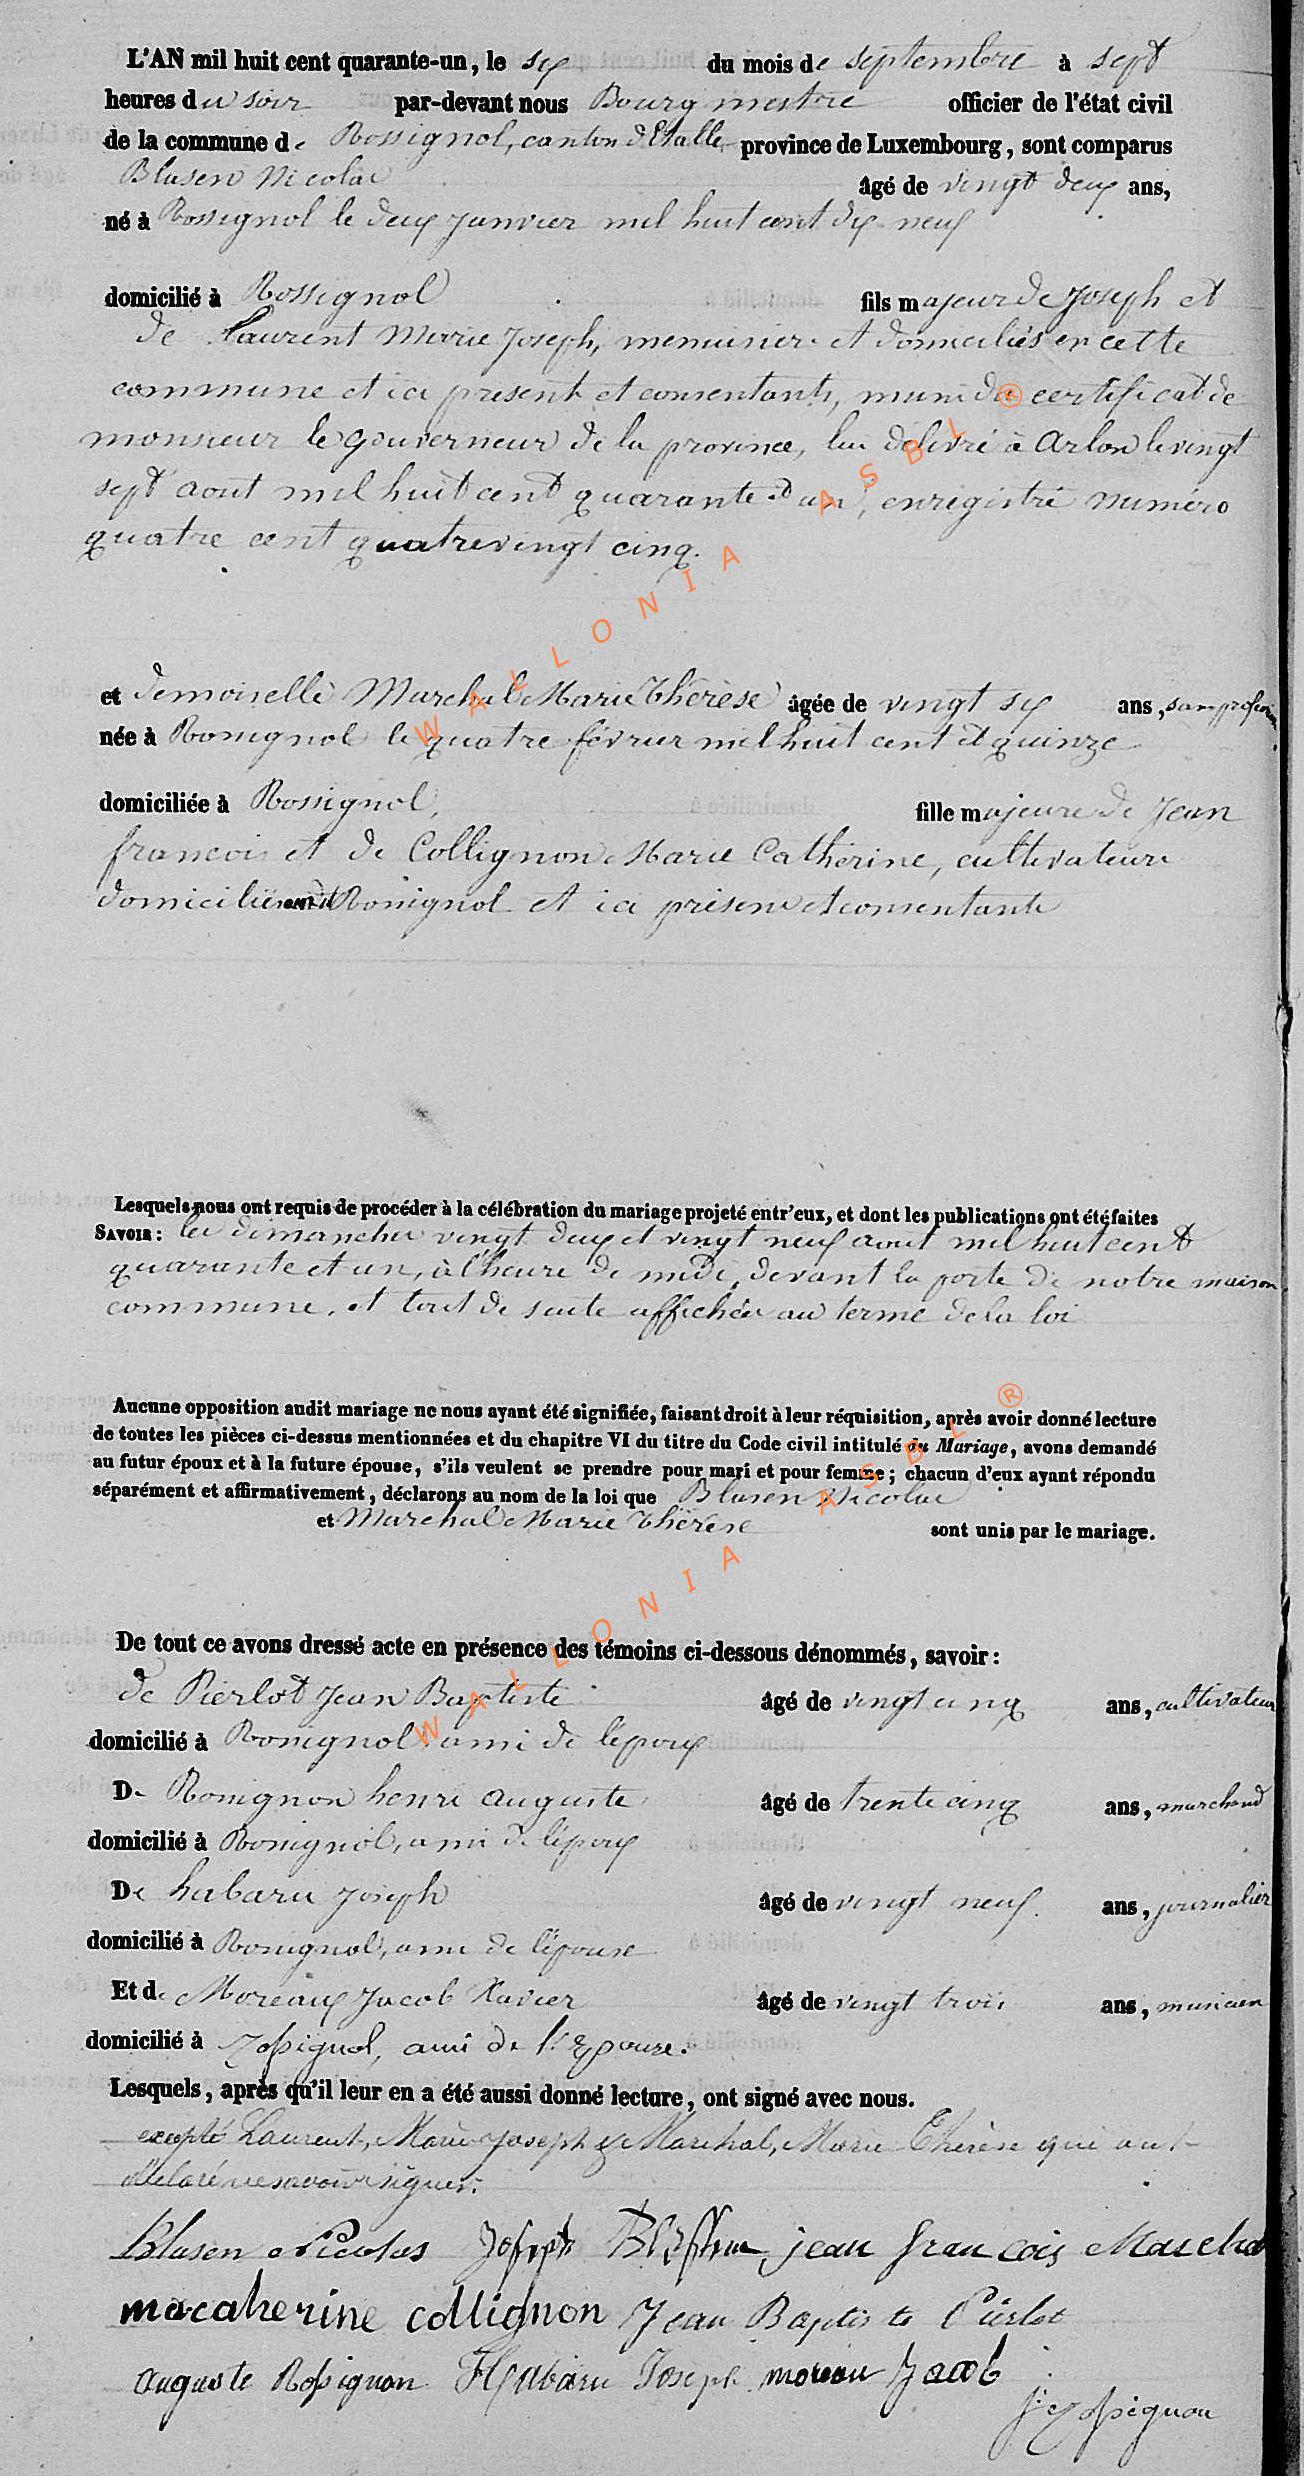 L'AN mil huit cent quarante-un, le six du mois de septembre à sept
heures du soir par-devant nous Bourgmestre officier de l'état civil
de la commune de Rossignol, canton d'Etalle province de Luxembourg, sont comparus
Blasen Nicolas âgé de vingt deux ans,
né à Rossignol le deux janvier mil huit cent dix neuf
domicilié à Rossignol fils majeur de Joseph et
de Laurent Marie Joseph, menuisier et domiciliés en cette
commune et ici présent et consentants, muni du certificat de
monsieur le gouverneur de la province, lui délivré à Arlon le vingt
sept aout mil huit cent quarante et un, enregistré numéro
quatre cent quatrevingt cinq.
et demoiselle Marchal Marie Thérèse âgée de vingt six ans, sans profession
née à Rossignol le quatre février mil huit cent et quinze
domiciliée à Rossignol, fille majeure de Jean
francois et de Collignon Marie Catherine, cultivateurs
domiciliés Rossignol et ici présens et consentants
Lesquels nous ont requis de procéder à la célébration du mariage projeté entr'eux, et dont les publications ont été faites
SAVOIR: les dimanches vingt deux et vingt neuf aout mil huit cent
quarante et un, à l'heure de midi, devant la porte de notre maison
commune, et tout de suite affichées au terme de la loi
Aucune opposition audit mariage ne nous ayant été signifiée, faisant droit à leur réquisition, après avoir donné lecture
de toutes les pièces ci-dessus mentionnées et du chapitre VI du titre du Code civil intitulé du Mariage, avons demandé
au futur époux et à la future épouse, s'ils veulent se prendre pour mari et pour femme; chacun d'eux ayant répondu
séparément et affirmativement, déclarons au nom de la loi que Blasen Nicolas
et Marchal Marie Thérèse sont unis par le mariage.
De tout ce avons dressé acte en présence des témoins ci-dessous dénommés, savoir:
de Pierlot Jean Baptiste âgé de vingt cinq ans, cultivateur
domicilié à Rossignol ami de l'époux
De Rossignon henri auguste âgé de trente cinq ans, marchand
domicilié à Rossignol, ami de l'époux
De habaru Joseph âgé de vingt neuf ans, journalier
domicilié à Rossignol, ami de l'épouse
Et de Moreaux Jacob Xavier âgé de vingt trois ans, musicien
domicilié à Rossignol, ami de l'Epouse.
Lesquels, après qu'il leur en a été aussi donné lecture, ont signé avec nous.
excepté Laurent, Marie Joseph & Marchal, Marie Thérèse qui ont
déclaré ne savoir signer.
Blasen Nicolas Joseph jean francois Marchal
macaherine collignon Jean Baptiste Pierlot
auguste Rossignon Habaru Joseph moreau Jacob
Rossignon
WALLONIA ASBL ®
WALLONIA ASBL ®